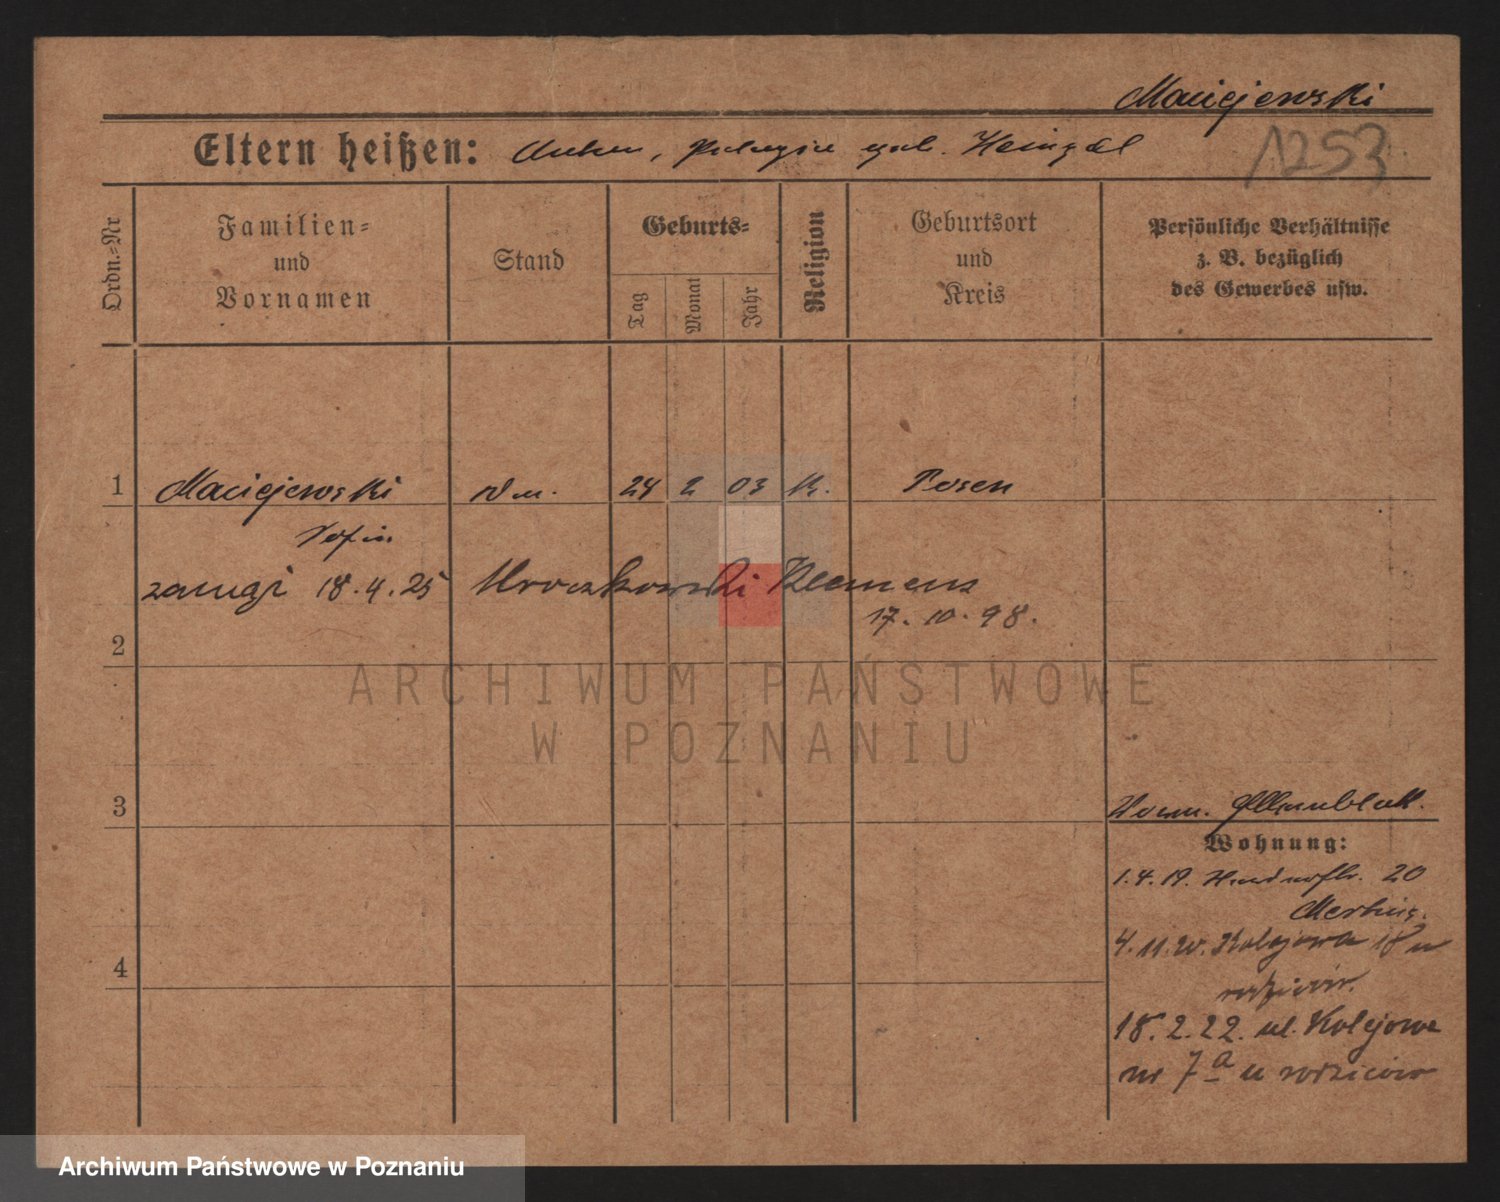 Maciejewski
Eltern heißen: geb.
1253
Ordn.-Nr
Familien-
und
Vornamen
Stand
Geburts-
Tag
Monat
Jahr
Religion
Geburtsort
und
Kreis
Persönliche Verhältnisse
z. B. bezüglich
des Gewerbes usw.
1 Maciejewski 24 2 03 K. Posen
18.4.25 Mroczkowski Klemens
17. 10. 98.
2
ARCHIWUM PAŃSTWOWE
W POZNANIU
3
Wohnung:
1.4.19. 20
4. 11. Kolejowa 18 u
4
rodziców.
18.2.22. ul. Kolejowa
nr 7a u rodziców
Archiwum Państwowe w Poznaniu